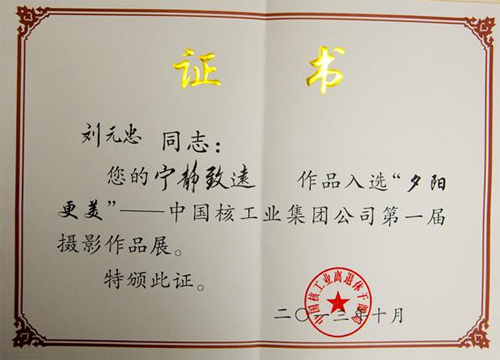 证书
刘元忠 同志：
您的宁静致远 作品入选“夕阳
更美”——中国核工业集团公司第一届
摄影作品展。
特颁此证。
中国核工业离退休干部局
二〇一三年十月